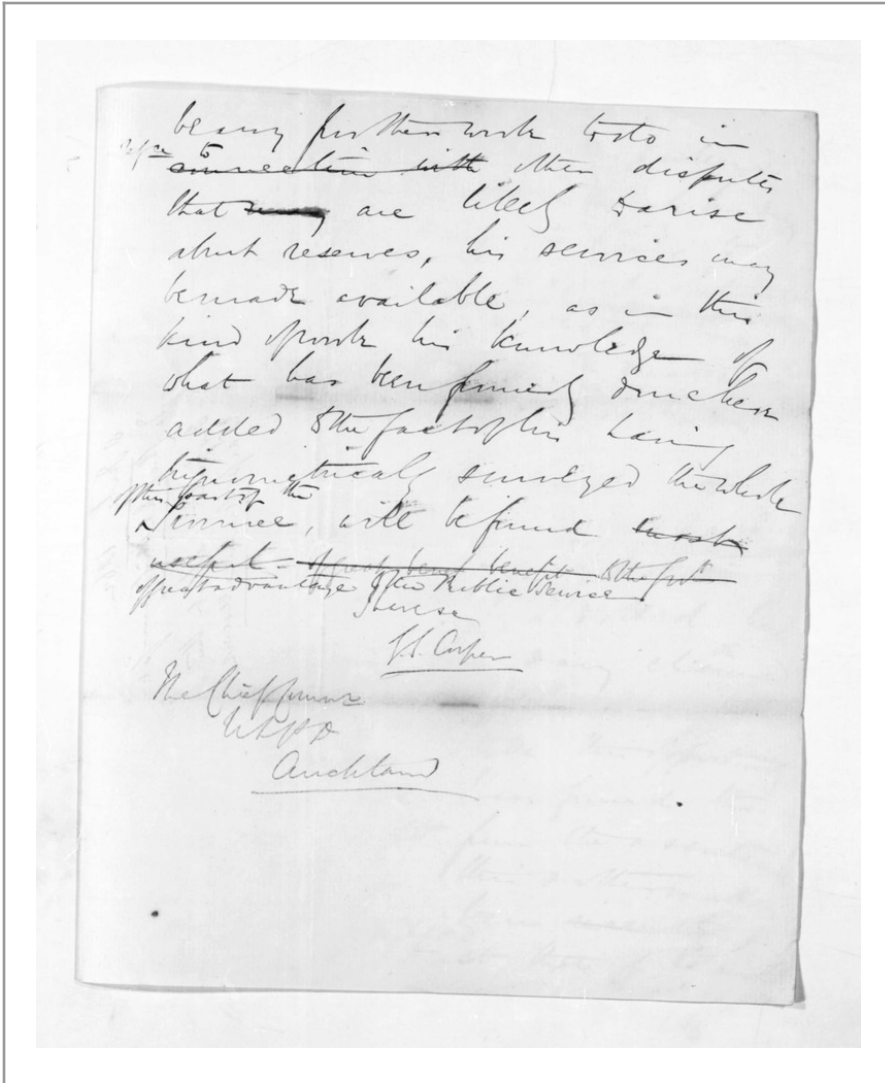 be any further work to do in
to
connection with other disputes
that may are likely to arise
about reserves, his services may
be made available, as in this
kind of work his knowledge of
what has been formerly done here
added to the fact of his having
trigonometrically surveyed the whole
of this part of the
Province, will be found most
useful - of great benefit to the
of great advantage to the Public Service
I have
G.S. Cooper
The Chief Commr
N L P D
Auckland